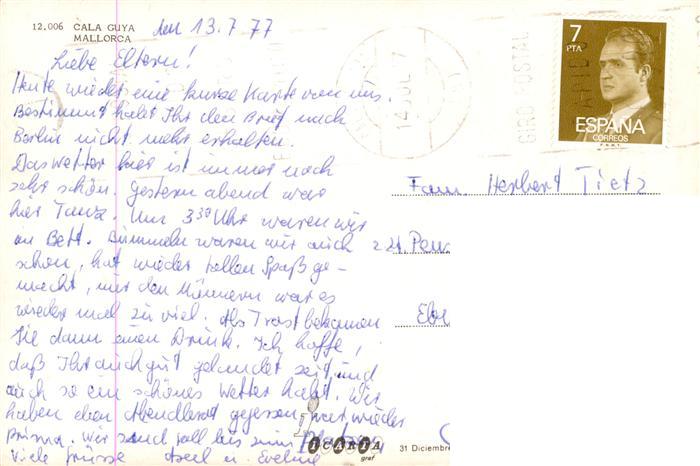 12.006 CALA GUYA
MALLORCA
den 13.7.77
Liebe Eltern!
Heute wieder eine kurze Karte von uns.
Bestimmt habt Ihr den Brief nach
Berlin nicht mehr erhalten.
Das Wetter hier ist immer noch
sehr schön. Gestern abend war
hier Tanz. Um 3 30 Uhr waren wir
im Bett. Bummeln waren wir auch
schon, hat wieder tollen Spaß ge-
macht, nur den Männern war es
wieder mal zu viel. Als Trost bekamen
Sie dann einen Drink. Ich hoffe,
daß Ihr auch gut gelandet seit und
auch so ein schönes Wetter habt. Wir
haben eben Abendbrot gegessen, war wieder
prima. Wir sind voll bis zum
Viele Grüsse Axel u. Eveline
7
PTA
ESPAÑA
CORREOS
F.N.M.T.
GIRO POSTAL
14 JUL
Fam. Herbert Tietz
ICARIA
graf
31 Diciembre